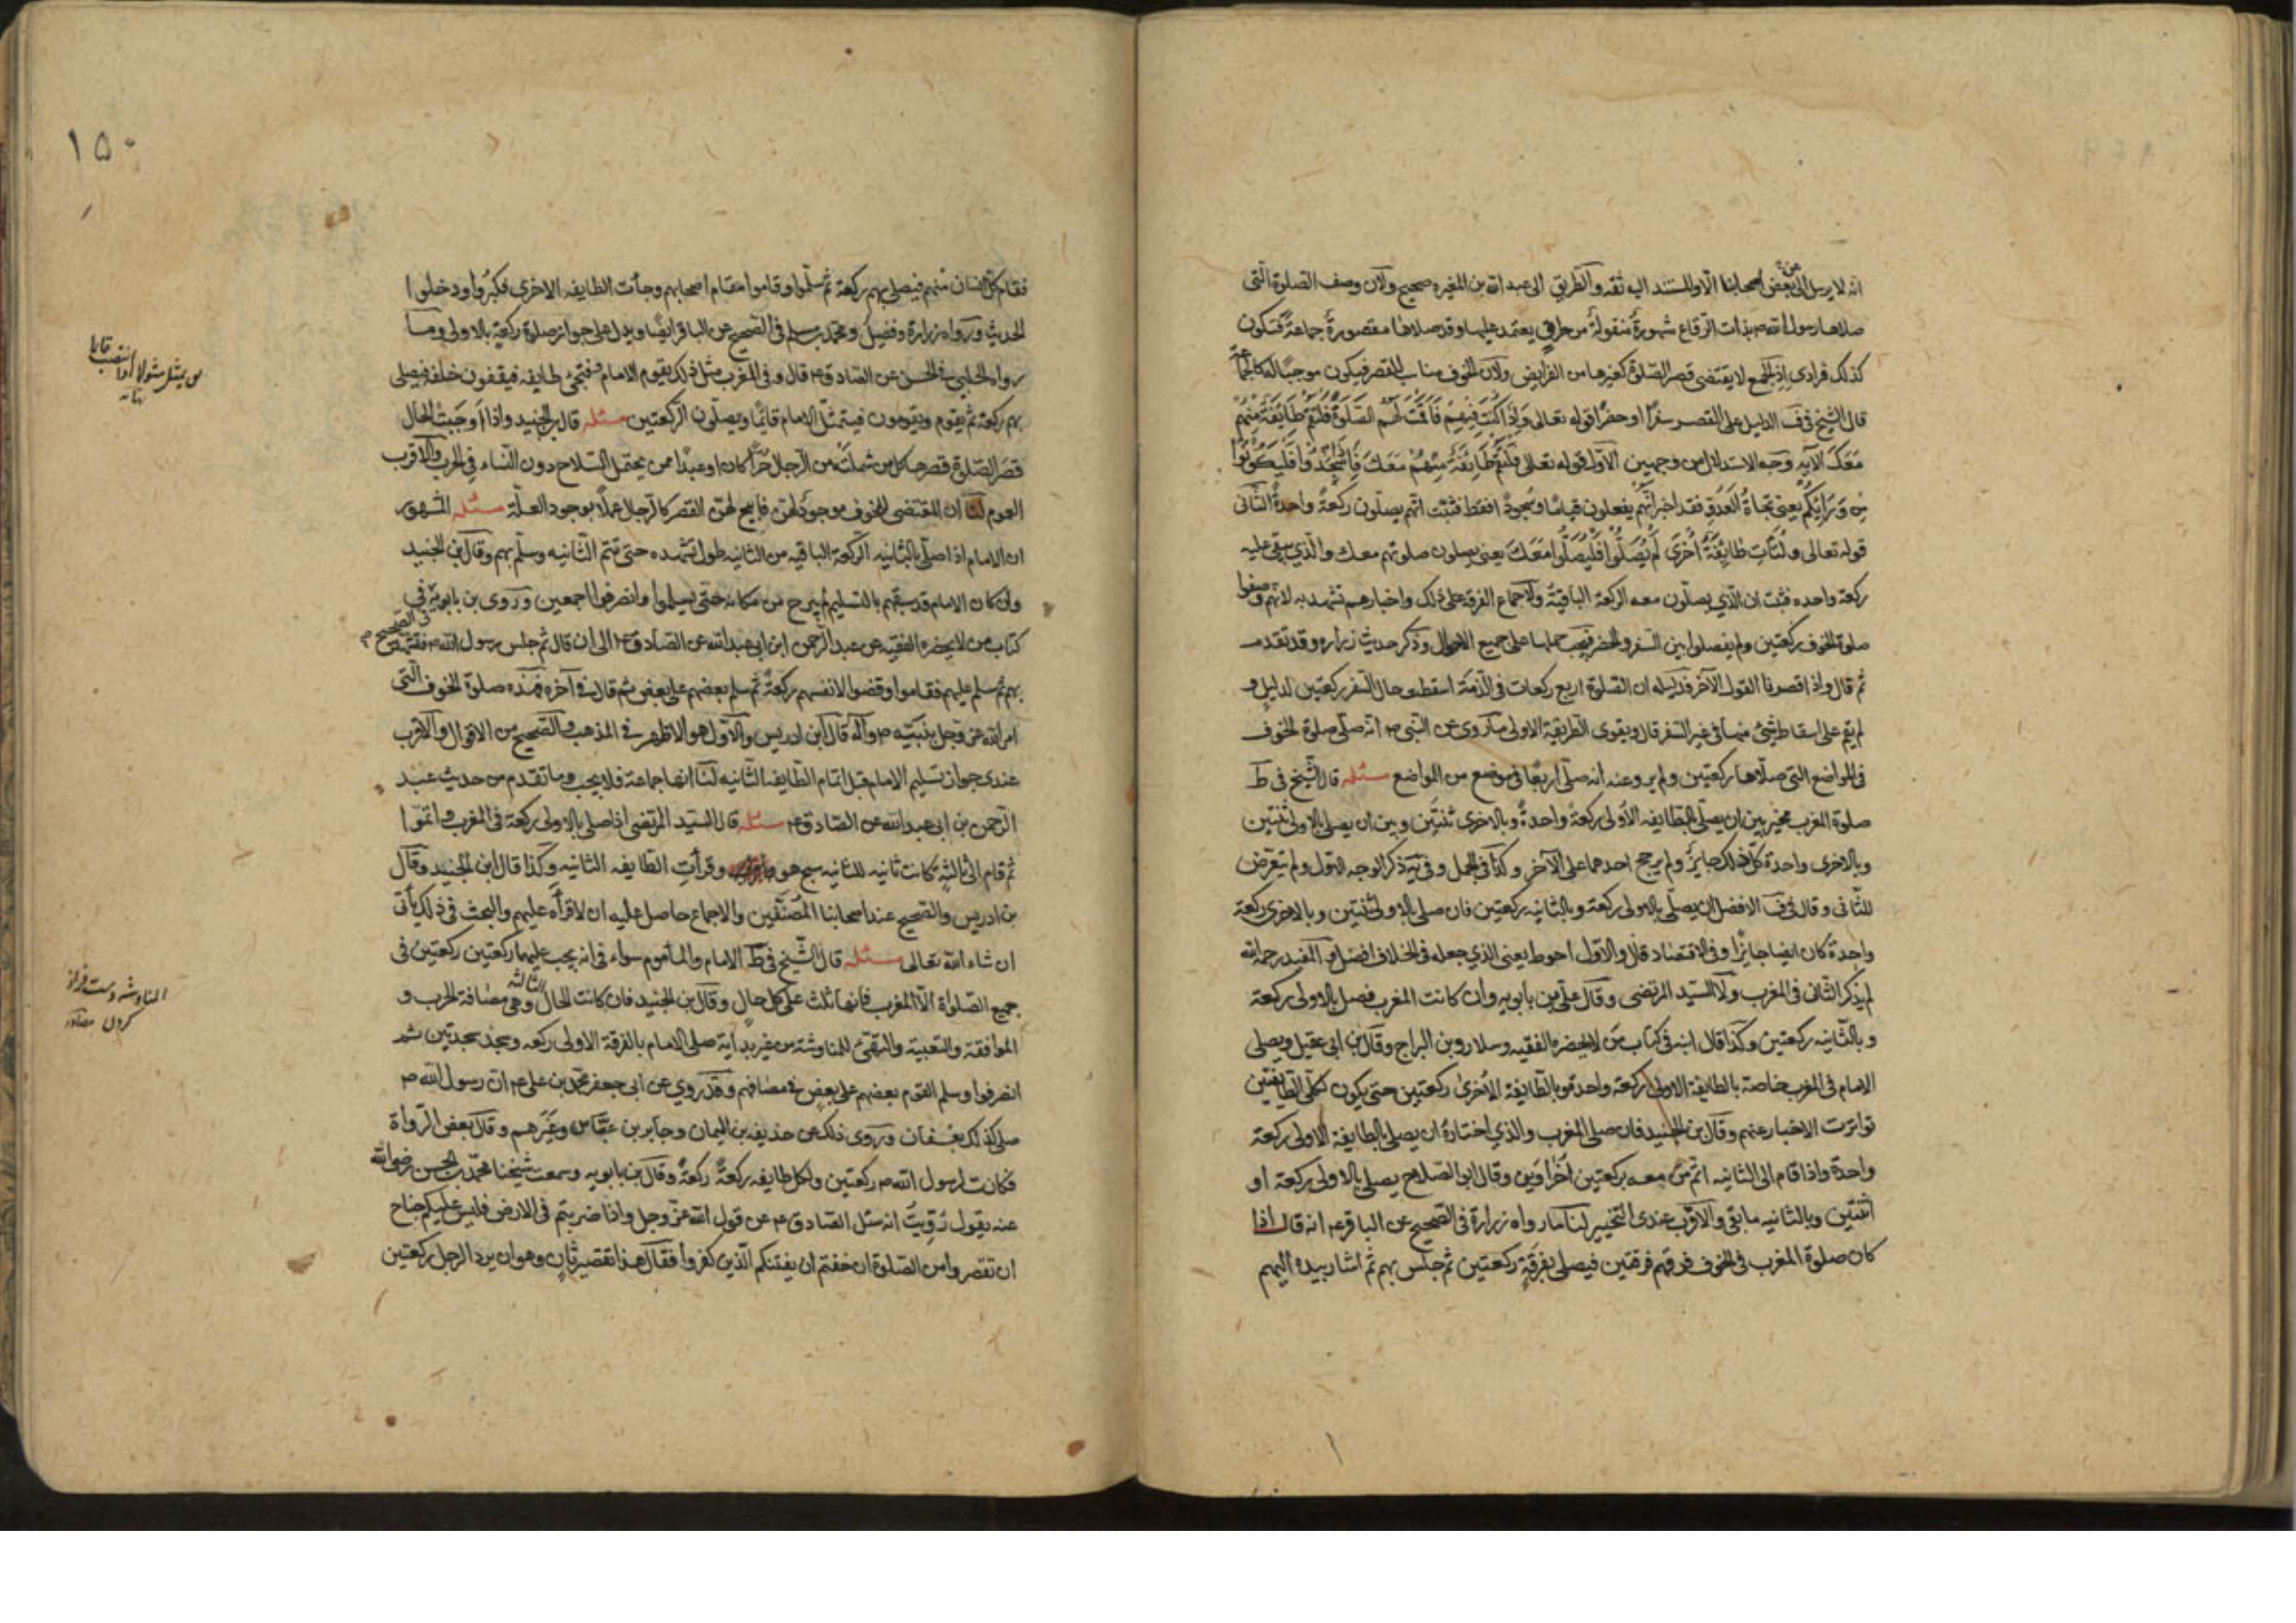 انه لا يرسل الى عن بعض اصحابنا الا والمستند اليه ثقه والطريق الى عبد الله بن المغيره صحيح ولان وصف الصلوة التى
صلاها رسول الله ص بذات الرقاع مشهورة منقولة من طرق يعتمد عليها وقد صلاها مقصورة جماعة فتكون
كذلك فرادى اذ الجمع لا يقتضى قصر الصلوة كغيرها من الفرايض ولان الخوف مناسب للقصر فيكون موجبا له
قال الشيخ فى ف الدليل على القصر سفرا او حضرا قوله تعالى واذا كنت فيهم فاقمت لهم الصلوة فلتقم طايفة منهم
معك الآيه وجه الاستدلال من وجهين الاول قوله تعالى فلتقم طايفة منهم معك فاذا سجدوا فليكونوا
من ورايكم يعنى تجاة العدو فقد اخبر انهم يفعلون قياما وسجودا فقط فثبت انهم يصلون ركعة واحدة الثانى
قوله تعالى ولتات طايفة اخرى لم يصلوا فليصلوا معك يعنى يصلون صلوتهم معك والذي بقى عليه
ركعة واحده فثبت ان الذي يصلون معه الركعة الباقية ولاجماع الفرقة على ذلك واخبارهم تشهد به لانهم وصفوا
صلوة الخوف ركعتين ولم يفصلوا بين السفر والحضر فيجب حملها على جميع الاحوال وذكر حديث زراره وقد تقدم
ثم قال واذا قصرنا القول الآخر فدليله ان الصلوة اربع ركعات فى الذمة اسقطت حال السفر ركعتين لدليل و
لم يقم على اسقاط شيئ منها فى غير السفر قال ويقوى الطريقة الاولى ما روى عن النبى ص انه صلى صلوة الخوف
فى المواضع التى صلاها ركعتين ولم يرو عنه انه صلى اربعا فى موضع من المواضع مسئله قال الشيخ فى ط
صلوة المغرب مخير بين ان يصلى بالطايفه الاولى ركعة واحدة وبالاخرى ثنتين وبين ان يصلى بالاولى ثنتين
وبالاخرى واحدة كل ذلك جايز ولم يرجح احدهما على الآخر وكذا فى الجمل وفى يه ذكر الوجه الاول ولم يتعرض
للثانى وقال فى ف الافضل ان يصلى بالاولى ركعة وبالثانيه ركعتين فان صلى بالاولى ثنتين وبالاخرى ركعة
واحدة كان ايضا جايزا وفى الاقتصاد قال والاول احوط يعنى الذي جعله فى الخلاف افضل والمفيد رحمه الله
لم يذكر الثانى فى المغرب ولا السيد المرتضى وقال على بن بابويه وان كانت المغرب فصل بالاولى ركعة
وبالثانيه ركعتين وكذا قال ابنه فى كتاب من لا يحضره الفقيه وسلار وبن البراج وقال بن ابى عقيل ويصلى
الامام فى المغرب خاصة بالطايفة الاولى ركعة واحدة وبالطايفة الاخرى ركعتين حتى يكون لكلى الطايفتين
تواترت الاخبار عنهم وقال بن الجنيد فان صلى المغرب والذي اختاره ان يصلى بالطايفة الاولى ركعة
واحدة واذا قام الى الثانيه اتم من معه بركعتين اخراوين وقال ابو الصلاح يصلى بالاولى ركعة او
اثنتين وبالثانيه ما بقى والاقرب عندى التخيير لنا ما رواه زرارة فى الصحيح عن الباقر ع انه قال اذا
كان صلوة المغرب فى الخوف فرقهم فرقتين فيصلى بفرقة ركعتين ثم جلس بهم ثم اشار بيده اليهم
١٥٠
فقام كل انسان منهم فيصلى بهم ركعة ثم سلموا وقاموا مقام اصحابهم وجاءت الطايفه الاخرى فكبروا ودخلوا
الحديث ورواه زرارة وفضيل ومحمد بن مسلم فى الصحيح عن الباقر ايضا ويدل على جواز صلوة ركعة بالاولى وما
رواه الحلبى فى الحسن عن الصادق ع قال وفى المغرب مثل ذلك يقوم الامام فتجئ طايفه فيقفون خلفه فيصلى
بهم ركعة ثم يقوم ويقومون فيتمثل الامام قايما ويصلون الركعتين مسئله قال بن الجنيد واذا اوجبت الحال
قصر الصلوة قصرها كل من شملت من الرجال حرا كان او عبدا ممن يحتمل السلاح دون النساء فى الحرب والاقرب
العموم لنا ان المقتضى للخوف موجود لهن فابيح لهن القصر كالرجال عملا بوجود العلة مسئله المشهور
ان الامام اذا صلى بالثانيه الركعة الباقيه من الثانيه طول تشهده حتى تتم الثانيه وسلم بهم وقال بن الجنيد
وان كان الامام قد سبقهم بالتسليم لم يبرح من مكانه حتى يسلموا وانصرفوا اجمعين وروى بن بابويه فى
كتاب من لا يحضره الفقيه عن عبد الرحمن ابن ابى عبد الله عن الصادق ع فى الصحيح الى ان قال ثم جلس رسول الله ص فتشهد
بهم ثم سلم عليهم فقاموا وقضوا لانفسهم ركعة ثم سلم بعضهم على بعض ثم قال فى آخره فهذه صلوة الخوف التى
امر الله عز وجل بها نبيه ص وآله قال ابن ادريس والاول هو الاظهر فى المذهب والصحيح من الاقوال والاقرب
عندى جواز تسليم الامام قبل اتمام الطايفه الثانيه لنا انها جماعة فلا يجب وما تقدم من حديث عبد
الرحمن بن ابى عبد الله عن الصادق ع مسئله قال السيد المرتضى اذا صلى بالاولى ركعة فى المغرب واتموا
ثم قام الى الثالثه كانت ثانيه للثانيه سبح هو وقرأت الطايفه الثانيه وكذا قال ابن الجنيد وقال
بن ادريس والصحيح عند اصحابنا المصنفين والاجماع حاصل عليه ان لا قرأه عليهم والبحث فى ذلك يأتى
ان شاء الله تعالى مسئله قال الشيخ فى ط الامام والمأموم سواء فى انه يجب عليهما ركعتين ركعتين فى
جميع الصلواة الا المغرب فانها ثلث على كل حال وقال بن الجنيد فان كانت الحال الثالثه وهى مصافة الحرب و
الموافقة والتعبية والتهيئ للمناوشة من غير بداية صلى الامام بالفرقة الاولى ركعه وسجد سجدتين ثم
انصرفوا وسلم القوم بعضهم على بعض فى مصافهم وقد روي عن ابى جعفر محمد بن على ع ان رسول الله ص
صلى كذلك بعسفان وروى ذلك عن حذيفه بن اليمان وجابر بن عباس وغيرهم وقال بعض الرواة
فكانت لرسول الله ص ركعتين ولكل طايفه ركعة ركعة وقال بن بابويه وسمعت شيخنا محمد بن الحسن رضى الله
عنه يقول رويت انه سئل الصادق ع عن قول الله عز وجل واذا ضربتم فى الارض فليس عليكم جناح
ان تقصروا من الصلوة ان خفتم ان يفتنكم الذين كفروا فقال هذا تقصير ثان وهو ان يرد الرجل ركعتين
المناوشه دست فراز
كردن